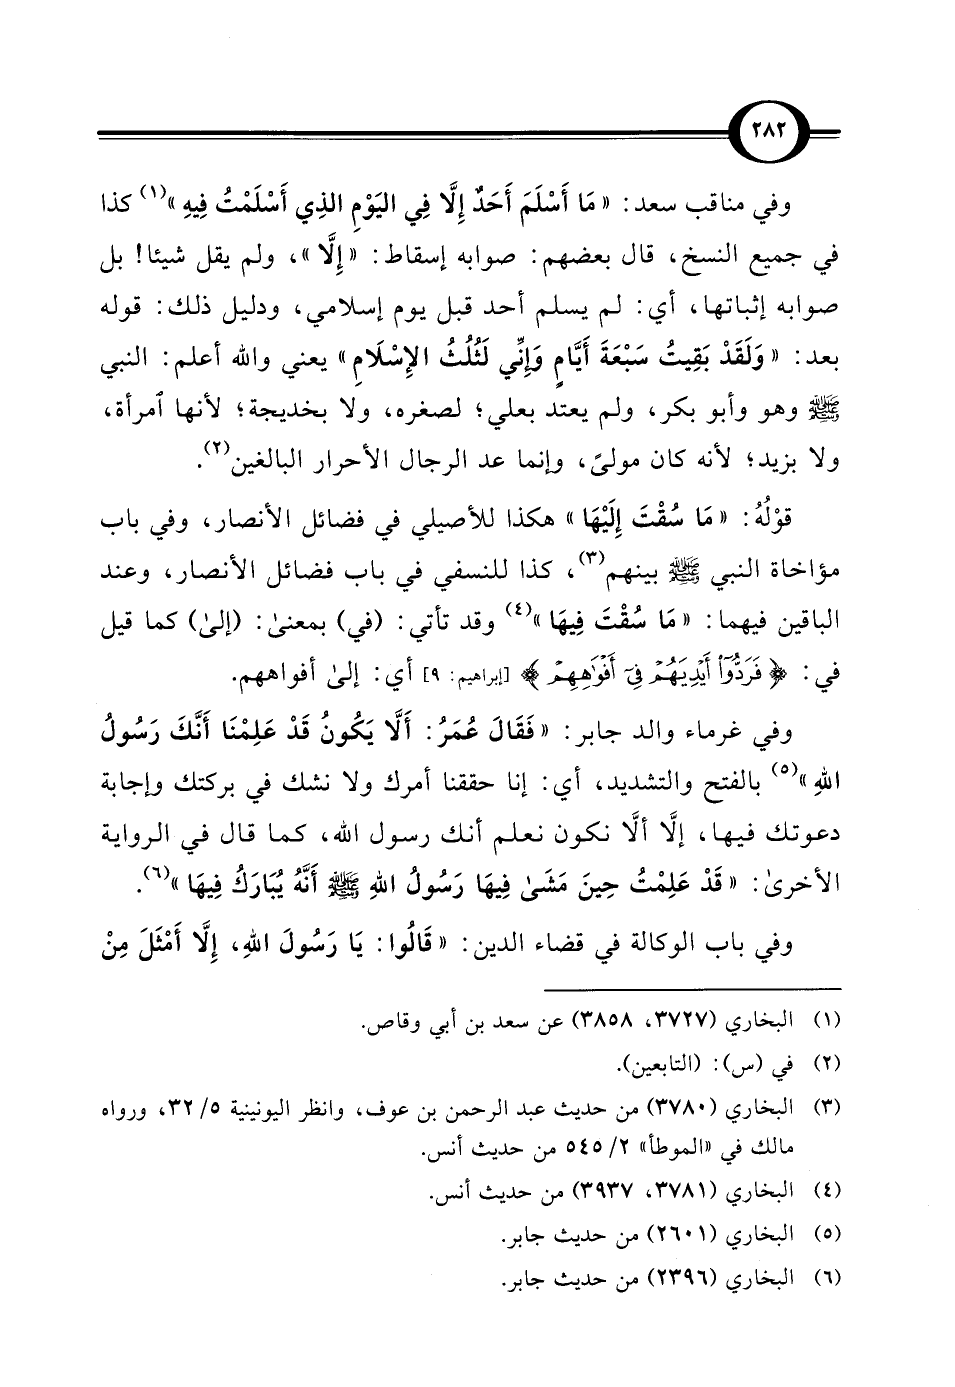 ٢٨٢
وفي مناقب سعد: «مَا أَسْلَمَ أَحَدٌ إِلَّا فِي اليَوْمِ الذِي أَسْلَمْتُ فِيهِ»(١) كذا
في جميع النسخ، قال بعضهم: صوابه إسقاط: «إِلَّا»، ولم يقل شيئا! بل
صوابه إثباتها، أي: لم يسلم أحد قبل يوم إسلامي، ودليل ذلك: قوله
بعد: «وَلَقَدْ بَقِيتُ سَبْعَةَ أَيَّامٍ وَإِنِّي لَثُلُثُ الإِسْلَامِ» يعني والله أعلم: النبي
ﷺ وهو وأبو بكر، ولم يعتد بعلي؛ لصغره، ولا بخديجة؛ لأنها ٱمرأة،
ولا بزيد؛ لأنه كان مولىً، وإنما عد الرجال الأحرار البالغين(٢).
قوْلُهُ: «مَا سُقْتَ إِلَيْهَا» هكذا للأصيلي في فضائل الأنصار، وفي باب
مؤاخاة النبي ﷺ بينهم(٣)، كذا للنسفي في باب فضائل الأنصار، وعند
الباقين فيهما: «مَا سُقْتَ فِيهَا»(٤) وقد تأتي: (في) بمعنىٰ: (إلىٰ) كما قيل
في: ﴿فَرَدُّوٓاْ أَيۡدِيَهُمۡ فِيٓ أَفۡوَٰهِهِمۡ﴾ [إبراهيم: ٩] أي: إلىٰ أفواههم.
وفي غرماء والد جابر: «فَقَالَ عُمَرُ: أَلَّا يَكُونُ قَدْ عَلِمْنَا أَنَّكَ رَسُولُ
اللهِ»(٥) بالفتح والتشديد، أي: إنا حققنا أمرك ولا نشك في بركتك وإجابة
دعوتك فيها، إلَّا ألَّا نكون نعلم أنك رسول الله، كما قال في الرواية
الأخرىٰ: «قَدْ عَلِمْتُ حِينَ مَشَىٰ فِيهَا رَسُولُ اللهِ ﷺ أَنَّهُ يُبَارَكُ فِيهَا»(٦).
وفي باب الوكالة في قضاء الدين: «قَالُوا: يَا رَسُولَ اللهِ، إِلَّا أَمْثَلَ مِنْ
(١) البخاري (٣٧٢٧، ٣٨٥٨) عن سعد بن أبي وقاص.
(٢) في (س): (التابعين).
(٣) البخاري (٣٧٨٠) من حديث عبد الرحمن بن عوف، وانظر اليونينية ٥/ ٣٢، ورواه
مالك في «الموطأ» ٢/ ٥٤٥ من حديث أنس.
(٤) البخاري (٣٧٨١، ٣٩٣٧) من حديث أنس.
(٥) البخاري (٢٦٠١) من حديث جابر.
(٦) البخاري (٢٣٩٦) من حديث جابر.